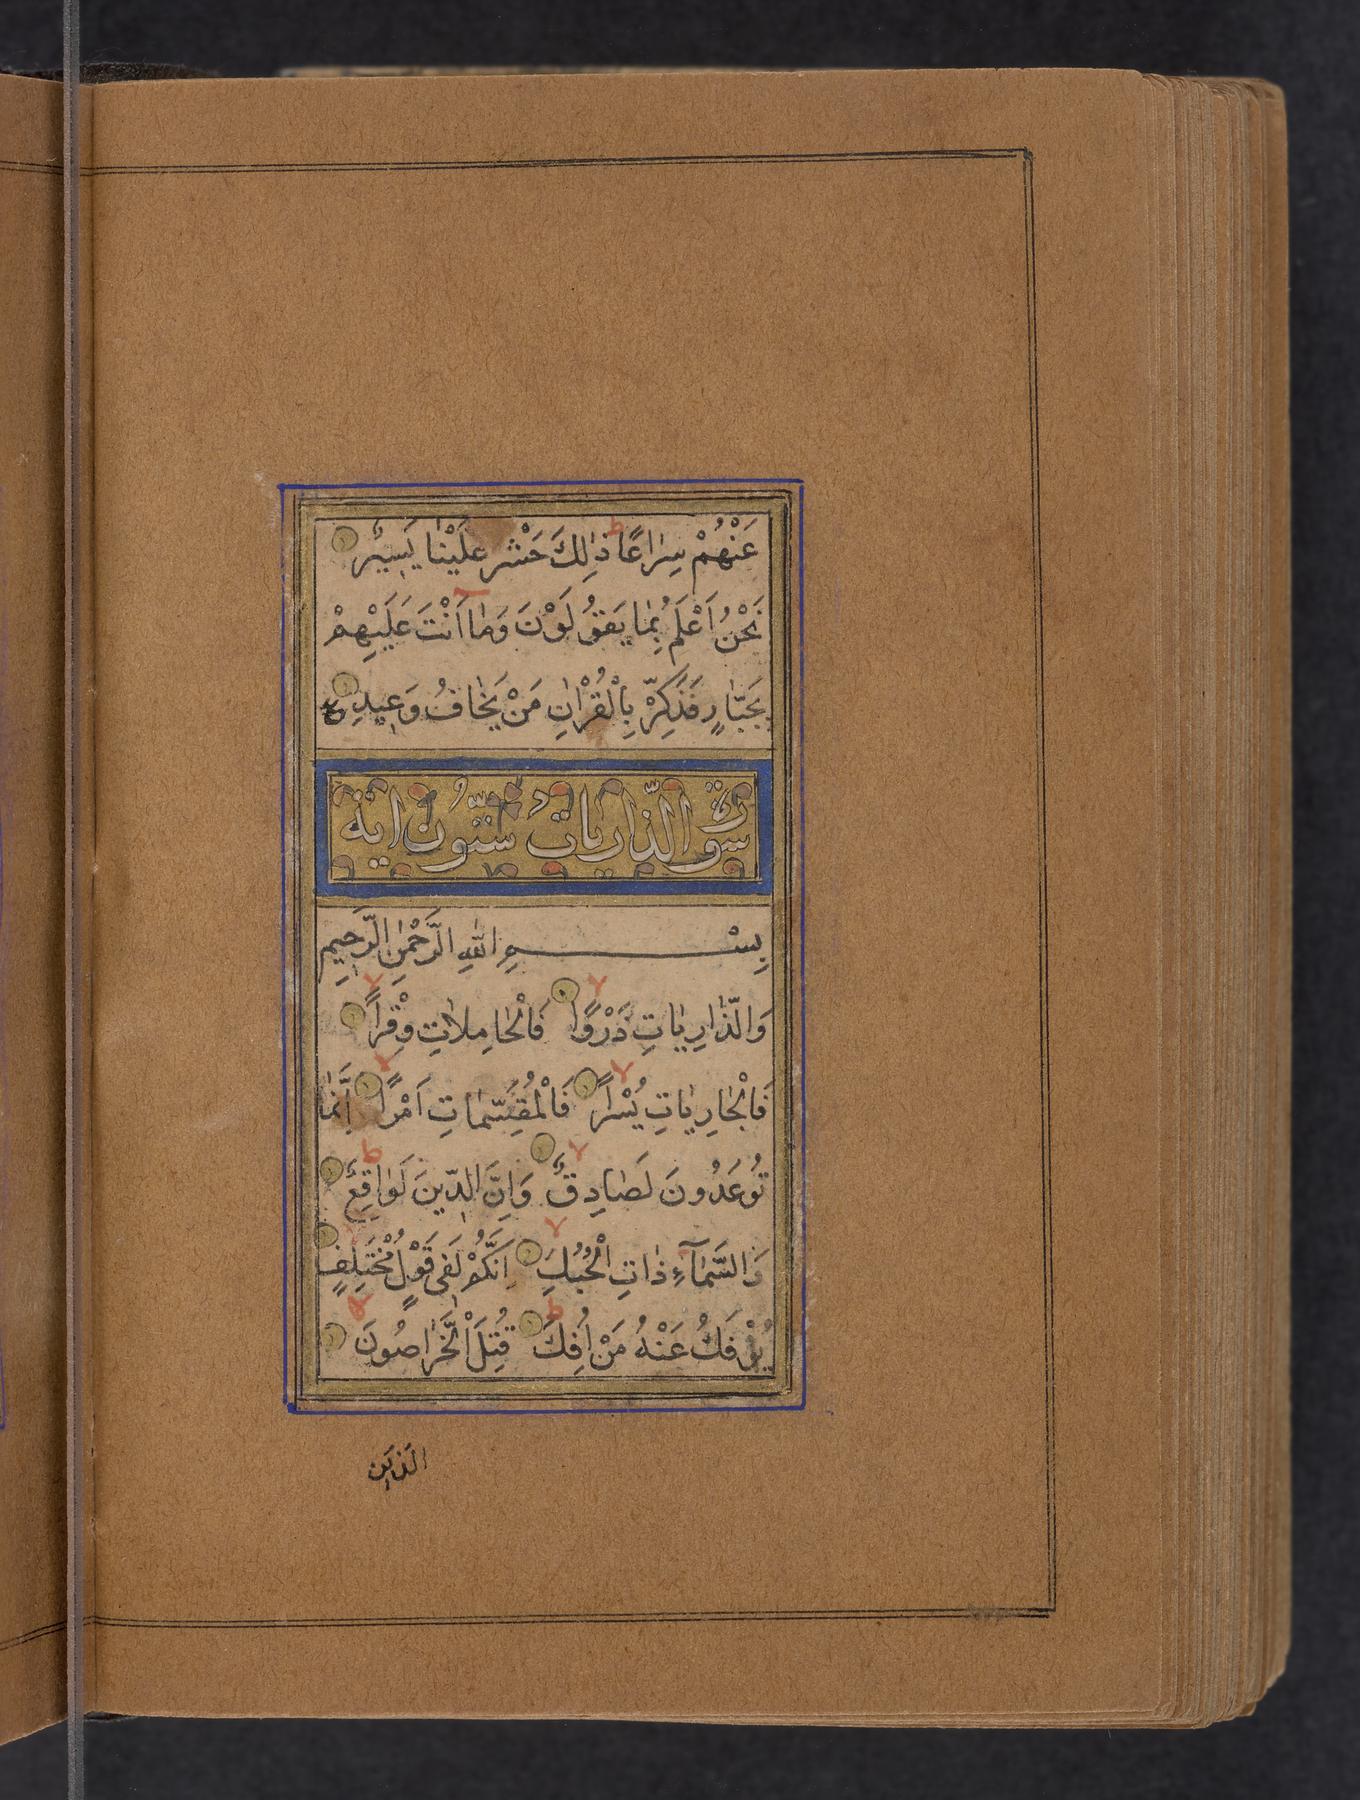 عَنْهُمْ سِرٰاعًا ذٰلِكَ حَشْر عَلَيْنٰا يَسِيٌر
نَحْنُ اَعْلَمُ بِمٰا يَقُولَوْنَ وَمٰا اَنْتَ عَلَيْهِمْ
بِجَبّٰارٍ فَذَكِّرْ بِالْقُرْاٰنِ مَنْ يَخٰافُ وَعِيدِ ع
سورة الذّاريات ستّون اية
بِسْمِ اللّٰهِ الرَّحْمٰنِ الرَّحِيمِ
وَالذّٰارِيٰاتِ ذَرْوًا فَالْحٰامِلاٰتِ وِقْراً
فَالْجٰارِيٰاتِ يُسْراً فَالْمُقَسِّمٰاتِ اَمْراً اِنَّمٰا
تُوعَدُونَ لَصٰادِقٌ وَاِنَّ الدِّينَ لَوٰاقِعٌ
وَالسَّمٰآءِ ذٰاتِ الْحُبُكِ اِنَّكُمْ لَفِى قَوْلٍ مُخْتَلِفٍ
يُؤْفَكُ عَنْهُ مَنْ اُفِكَ قُتِلَ الْخَرّٰاصُونَ
الَذيَن